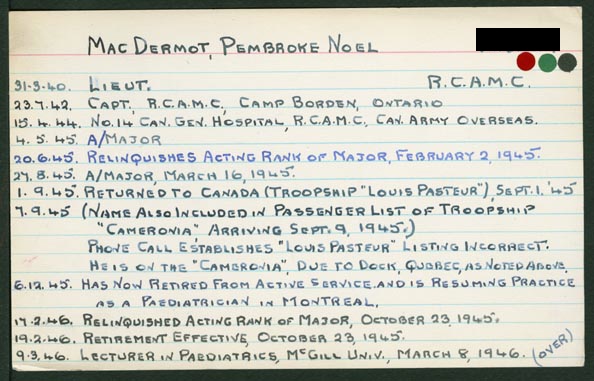 MacDermot, Pembroke Noel
31-3-40. Lieut. R.C.A.M.C.
23.7.42. Capt, R.C.A.M.C, Camp Borden, Ontario
15.4.44. No.14 Can. Gen. Hospital, R.C.A.M.C, Can. Army Overseas.
4.5.45 A/Major
20.6.45. Relinquishes Acting Rank of Major, February 2, 1945.
27.8.45. A/Major, March 16, 1945.
1.9.45. Returned to Canada (Troopship "Louis Pasteur"), Sept. 1. '45
7.9.45 (Name Also Included in Passenger List of Troopship
"Cameronia" Arriving Sept. 9, 1945.)
Phone Call Establishes "Louis Pasteur" Listing Incorrect.
He is on the "Cameronia", Due to Dock, Quebec, as Noted Above.
6.12.45. Has Now Retired From Active Service and is Resuming Practice
as a Paediatrician in Montreal.
17.2.46. Relinquished Acting Rank of Major, October 23, 1945.
19.2.46. Retirement Effective, October 23, 1945.
9.3.46. Lecturer in Paediatrics, McGill Univ., March 8, 1946.
(over)